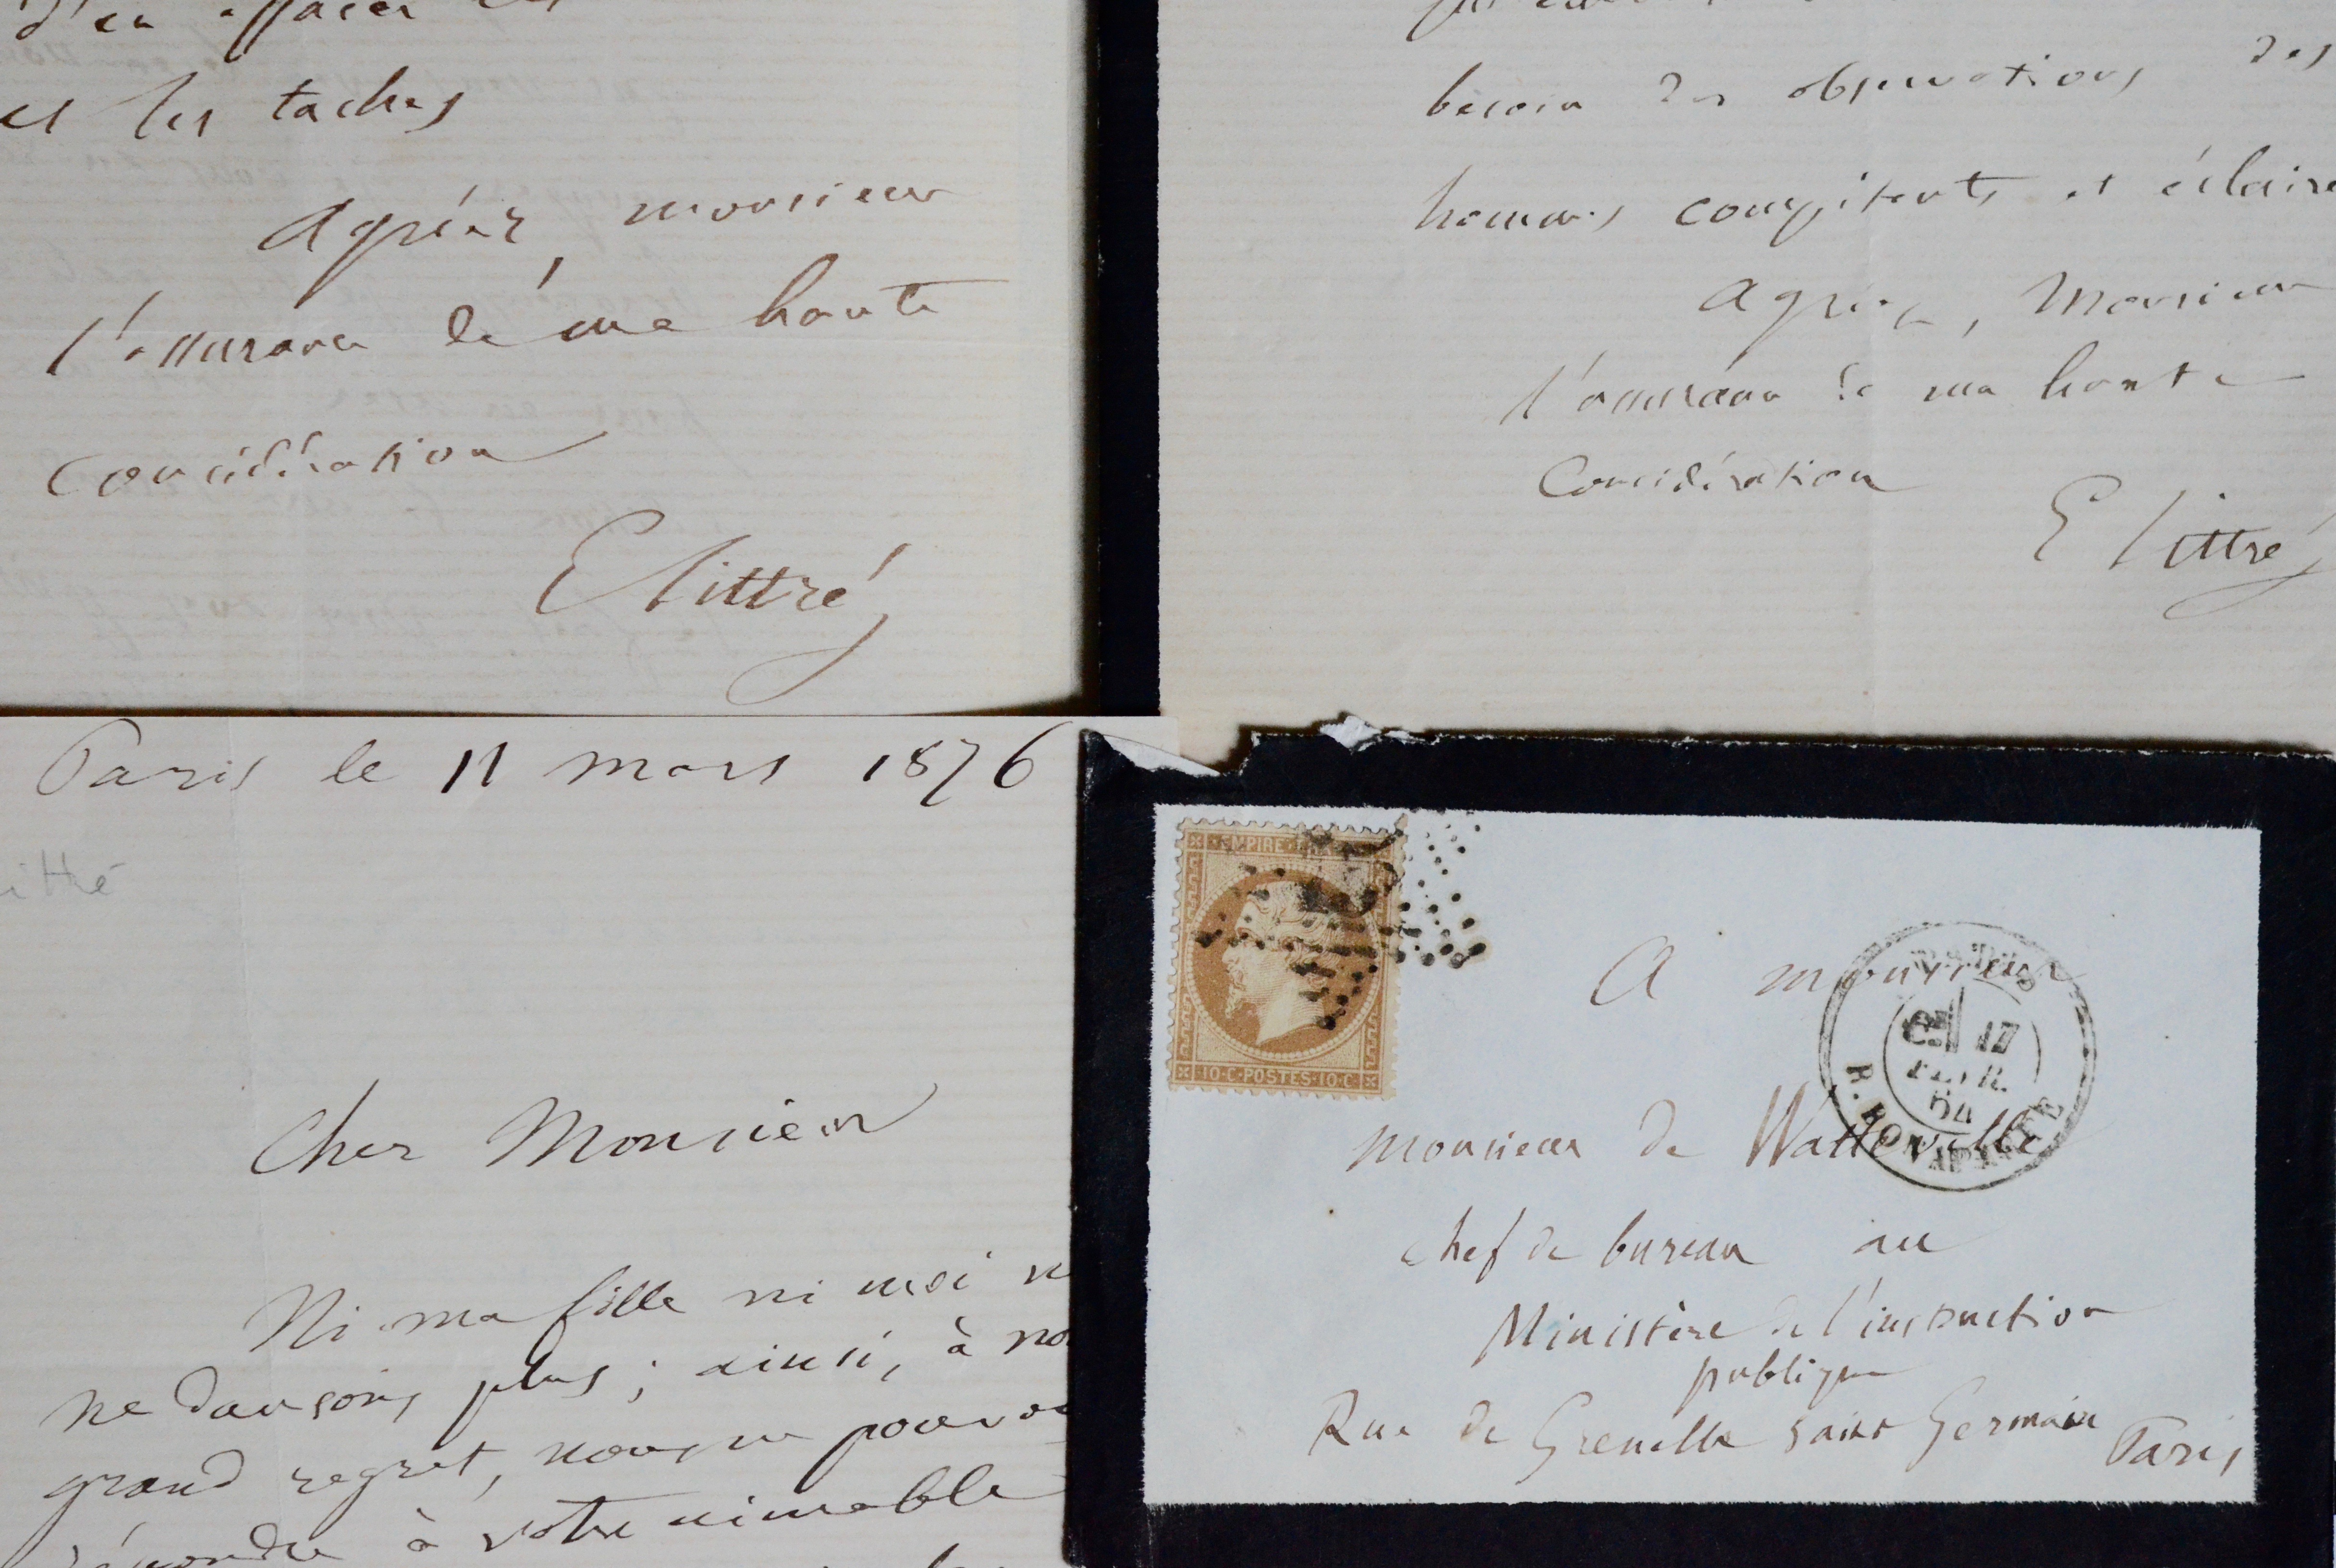 d'en effacer les
et les taches
Agréez, monsieur
l'assurance de ma haute
considération
E Littré
besoin des observations des
hommes compétents et éclairé
Agréez, Monsieur
l'assurance de ma haute
Considération
E Littré
Paris le 11 mars 1876
ittré
Cher Monsieur
Ni ma fille ni moi n
ne dansons plus; ainsi, à no
grand regret, nous ne pouvo
répondre à votre aimable
EMPIRE
10·C·POSTES·10·C
PARIS
17
FEVR.
64
R. BONAPARTE
A monsieur
Monsieur de Watteville
chef de bureau au
Ministère de l'instruction
publique
Rue de Grenelle Saint Germain
Paris